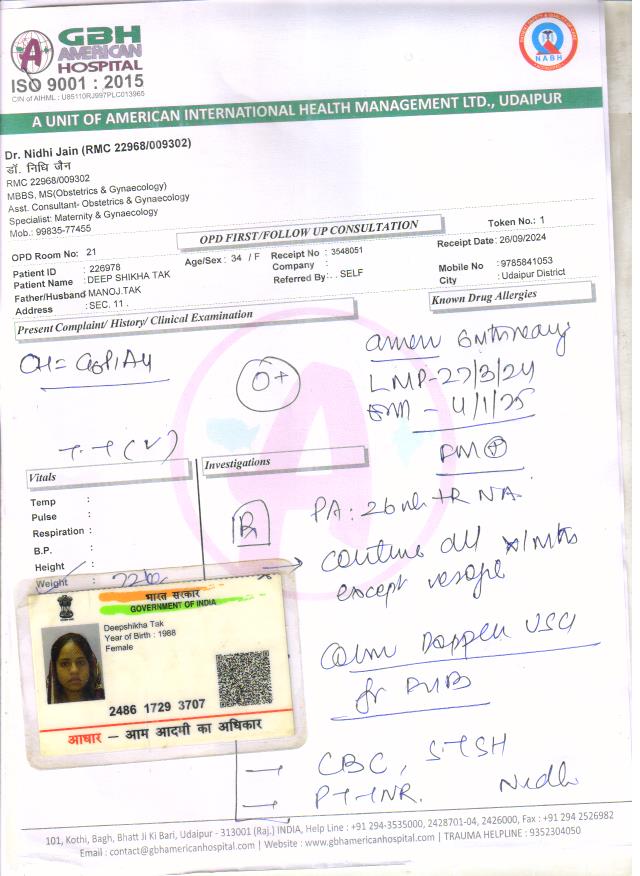 GBH
AMERICAN
HOSPITAL
ISO 9001 : 2015
CIN of AIHML : U85110RJ997PLC013965
NABH
A UNIT OF AMERICAN INTERNATIONAL HEALTH MANAGEMENT LTD., UDAIPUR
Dr. Nidhi Jain (RMC 22968/009302)
डॉ. निधि जैन
RMC 22968/009302
MBBS, MS(Obstetrics & Gynaecology)
Asst. Consultant- Obstetrics & Gynaecology
Specialist: Maternity & Gynaecology
Mob.: 99835-77455
OPD FIRST/FOLLOW UP CONSULTATION
Token No.: 1
OPD Room No: 21
Age/Sex : 34 / F
Receipt No : 3548051
Receipt Date : 26/09/2024
Patient ID : 226978
Company :
Mobile No : 9785841053
Patient Name : DEEP SHIKHA TAK
Referred By: . SELF
City : Udaipur District
Father/Husband MANOJ.TAK
Address : SEC. 11 .
Known Drug Allergies
Present Complaint/ History/ Clinical Examination
O+
LMP-27/3/24
- 4/1/25
Vitals
Investigations
Temp :
Pulse :
Respiration :
B.P. :
Height :
Weight :
Rx
PA: 26
continue all
except
USG
for
CBC, S.TSH
PT-INR.
Nidhi
भारत सरकार
GOVERNMENT OF INDIA
Deepshikha Tak
Year of Birth : 1988
Female
2486 1729 3707
आधार – आम आदमी का अधिकार
101, Kothi, Bagh, Bhatt Ji Ki Bari, Udaipur - 313001 (Raj.) INDIA, Help Line : +91 294-3535000, 2428701-04, 2426000, Fax : +91 294 2526982
Email : contact@gbhamericanhospital.com | Website : www.gbhamericanhospital.com | TRAUMA HELPLINE : 9352304050